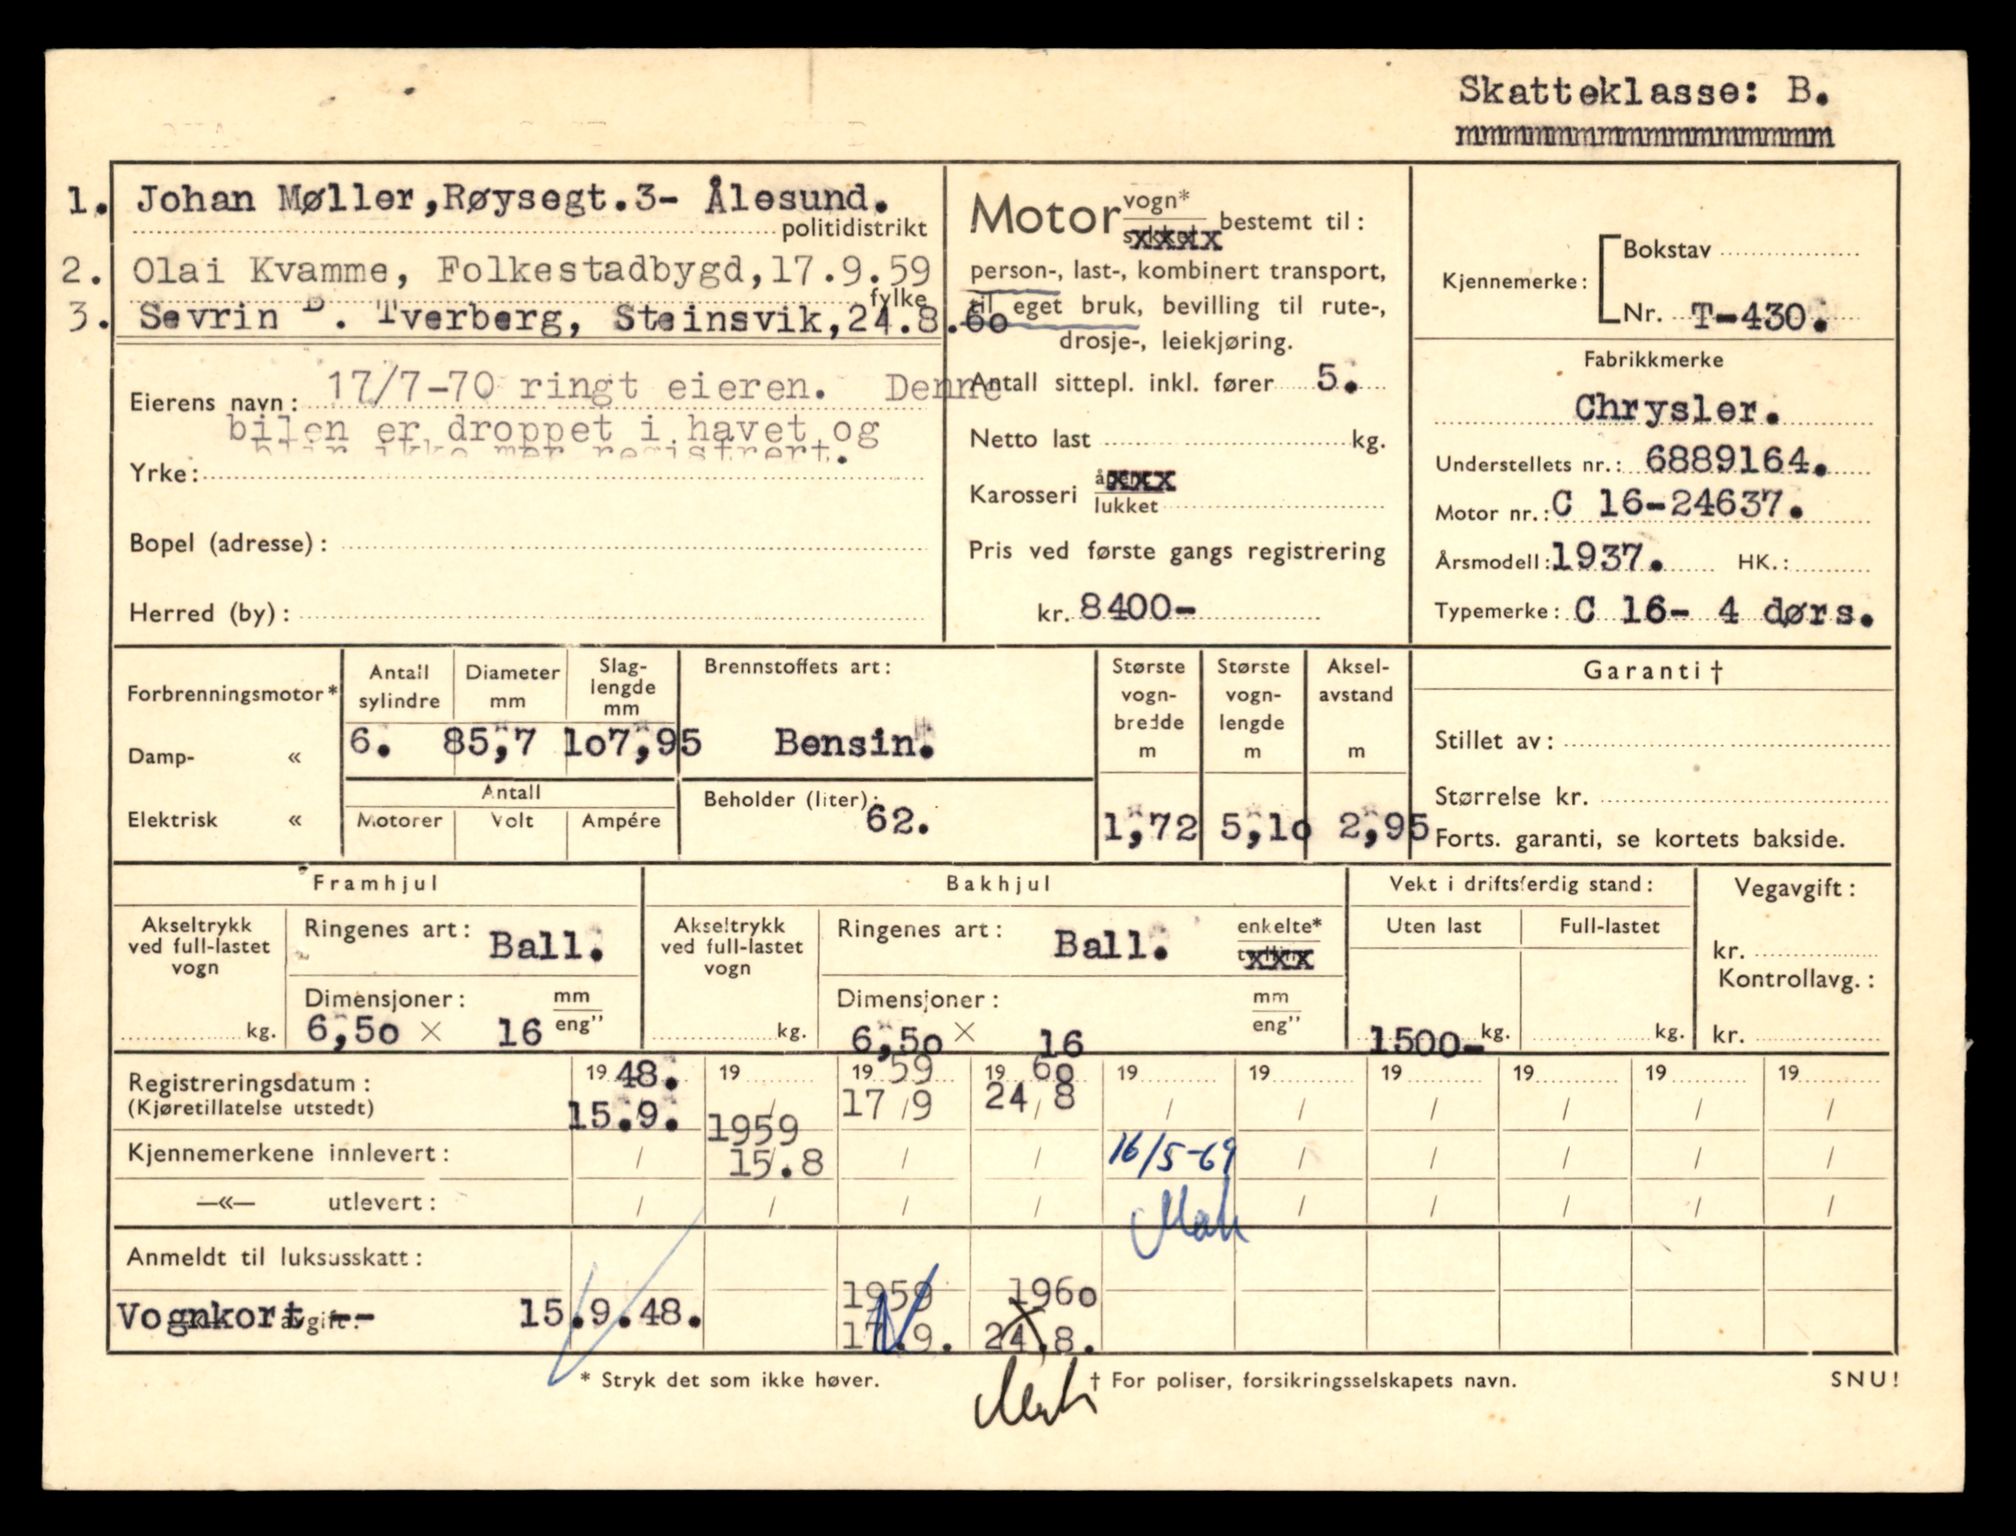 Skatteklasse: B.
mmmmmmmmmmmmmmmmmm
1. Johan Møller,Røysegt.3- Ålesund.
politidistrikt
2. Olai Kvamme, Folkestadbygd,17.9.59
fylke
3. Sevrin D. Tverberg, Steinsvik,24.8.60
Eierens navn: 17/7-70 ringt eieren. Denne
bilen er droppet i havet og
blir ikke mer registrert.
Yrke:
Bopel (adresse):
Herred (by):
Motor vogn* bestemt til:
person-, last-, kombinert transport,
til eget bruk, bevilling til rute-,
drosje-, leiekjøring.
Antall sittepl. inkl. fører 5.
Netto last kg.
Karosseri
lukket
Pris ved første gangs registrering
kr. 8400-
Kjennemerke: Bokstav
Nr. T-430.
Fabrikkmerke
Chrysler.
Understellets nr.: 6889164.
Motor nr.: C 16-24637.
Årsmodell: 1937. HK.:
Typemerke: C 16- 4 dørs.
Forbrenningsmotor*
Damp- «
Elektrisk «
Antall sylindre
6.
Diameter mm
85,7
Slag-lengde mm
107,95
Antall
Motorer Volt Ampére
Brennstoffets art:
Bensin.
Beholder (liter):
62.
Største vogn-bredde m
1,72
Største vogn-lengde m
5,10
Aksel-avstand m
2,95
Garanti †
Stillet av:
Størrelse kr.
Forts. garanti, se kortets bakside.
Framhjul
Akseltrykk ved full-lastet vogn
kg.
Ringenes art: Ball.
Dimensjoner: mm
6,50 × 16 eng”
Bakhjul
Akseltrykk ved full-lastet vogn
kg.
Ringenes art: Ball. enkelte*
Dimensjoner: mm
6,50 × 16 eng”
Vekt i driftsferdig stand:
Uten last Full-lastet
1500- kg. kg.
Vegavgift:
kr.
Kontrollavg.:
kr.
Registreringsdatum: 1948. 19 1959 1960 19 19 19 19 19 19
(Kjøretillatelse utstedt) 15.9. / 17/9 24/8 / / / / / /
1959
Kjennemerkene innlevert: / 15.8 / / 16/5-69 / / / / /
—«— utlevert: / / / / / / / / /
Anmeldt til luksusskatt:
1959 1960
Vognkort -- avgift: 15.9.48. 17.9. 24.8.
* Stryk det som ikke høver.
† For poliser, forsikringsselskapets navn.
SNU!